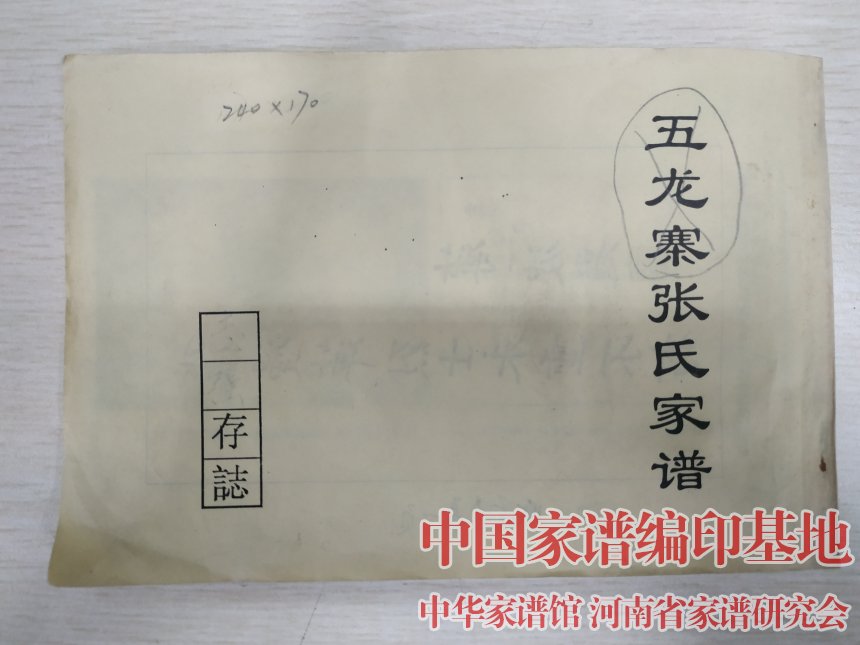 240×170
五龙寨张氏家谱
存誌
中国家谱编印基地
中华家谱馆 河南省家谱研究会